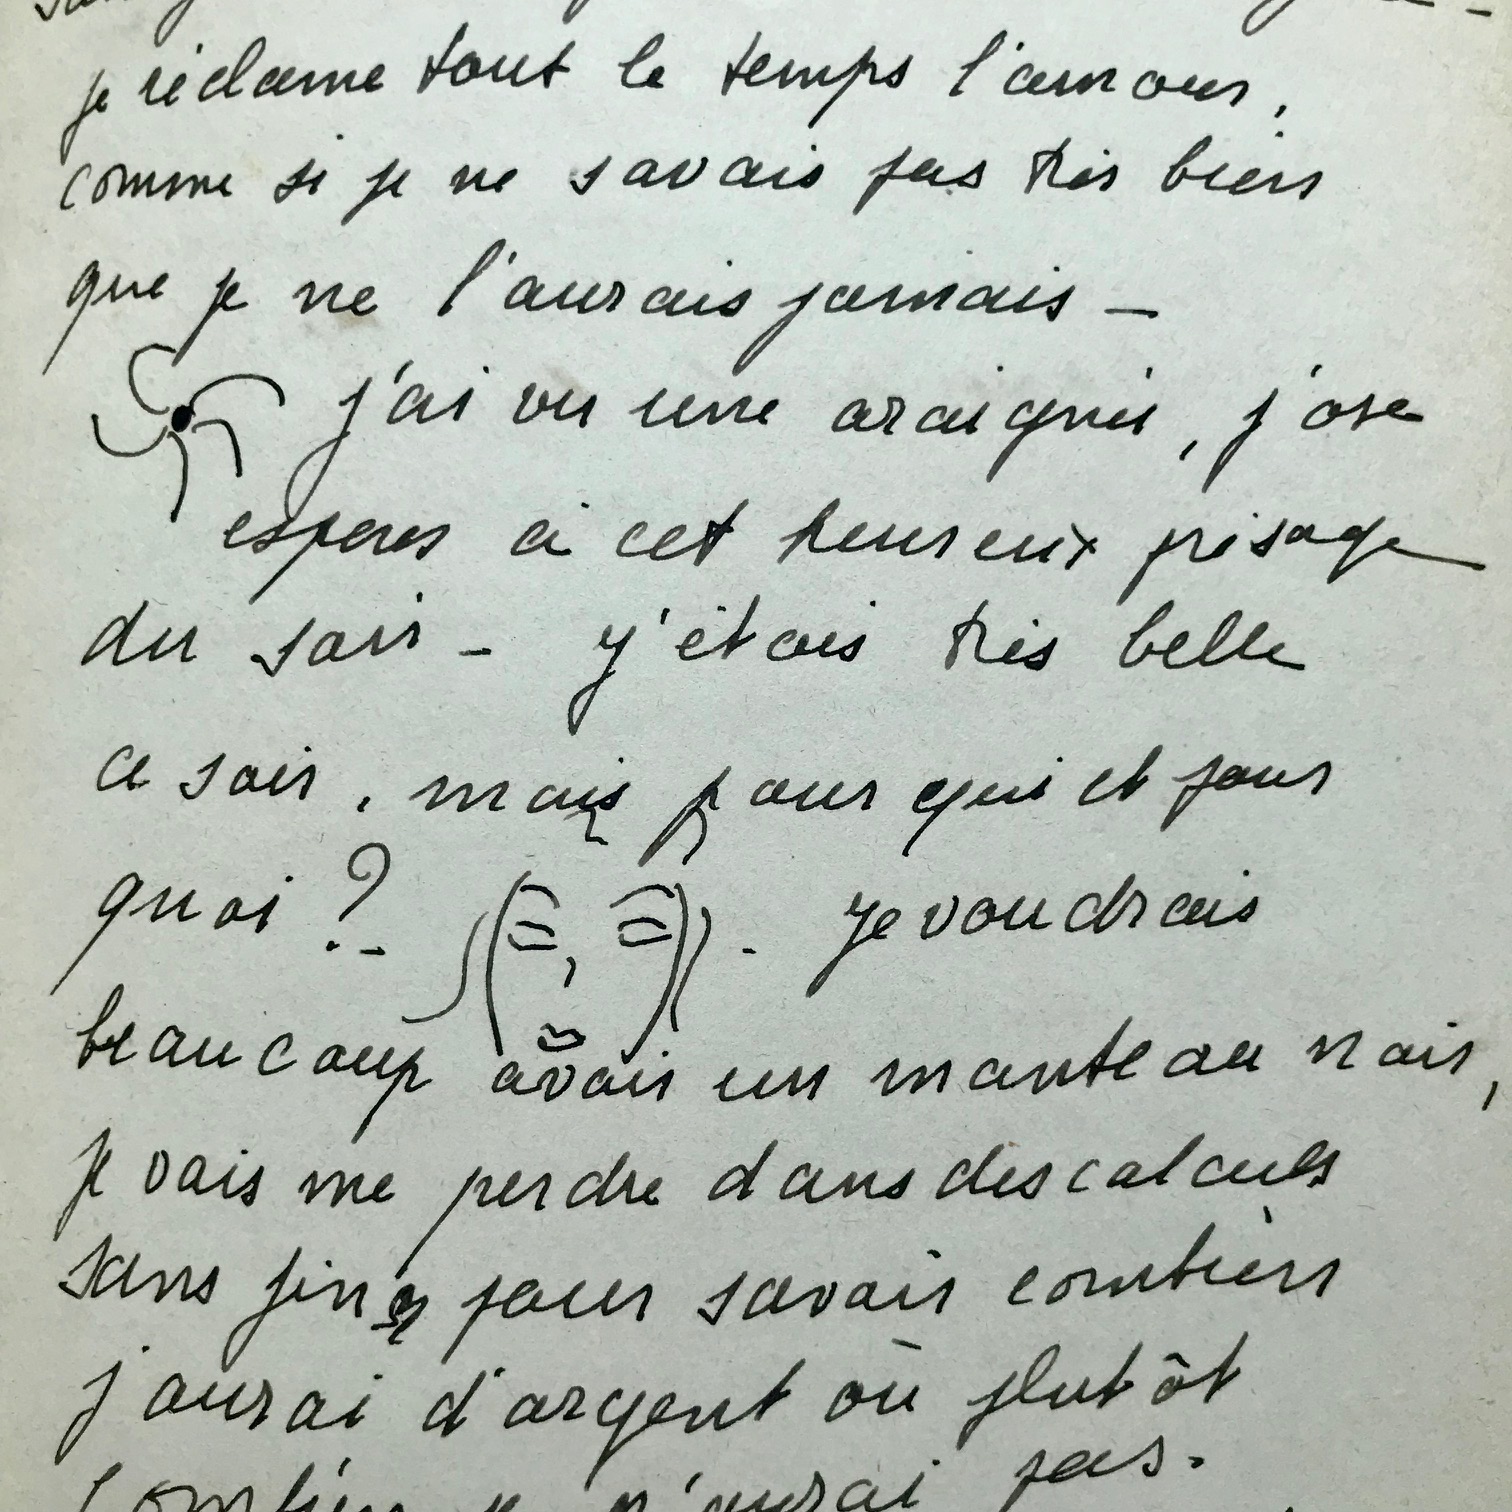 je réclame tout le temps l'amour,
comme si je ne savais pas très bien
que je ne l'aurais jamais -
j'ai vu une araignée, j'ose
esperer à cet heureux présage
du soir - j'étais très belle
ce soir, mais pour qui et pour
quoi ? - . je voudrais
beaucoup avoir un manteau noir,
je vais me perdre dans des calculs
sans fin pour savoir combien
j'aurai d'argent où plutôt
combien je n'aurai pas.